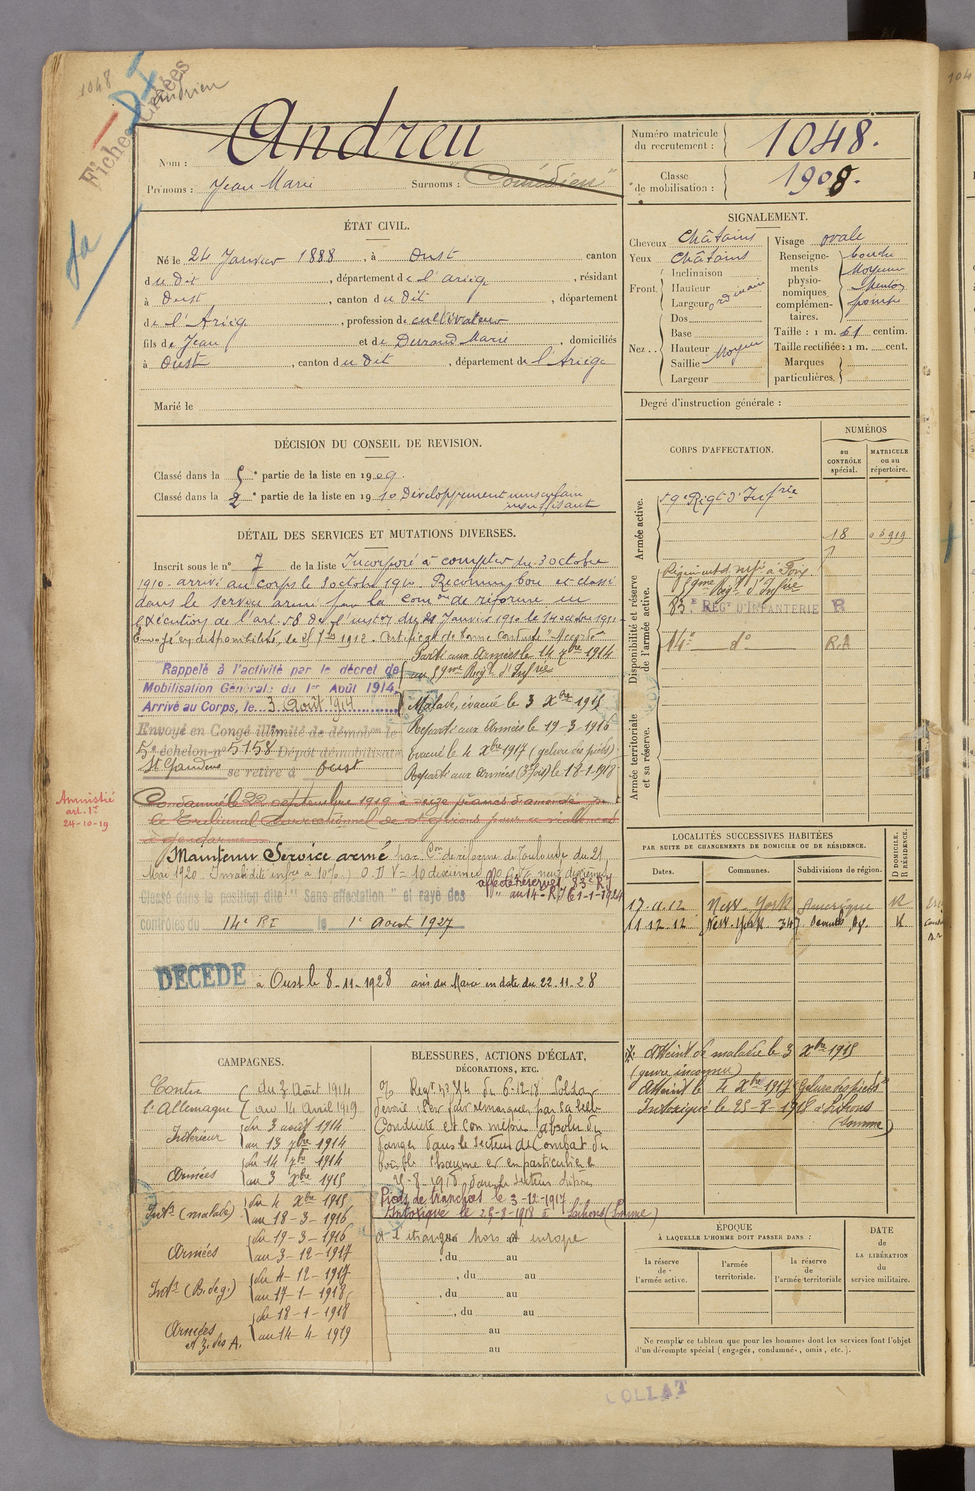 1048
Fiches Créées
Andrieu
Nom : Andreu
Prénoms : Jean Marie Surnoms : "Comédien"
Numéro matricule du recrutement : 1048.
Classe de mobilisation : 1908.
ÉTAT CIVIL.
Né le 24 Janvier 1888, à Oust canton
du dit, département de l'ariège, résidant
à Oust, canton du dit, département
de l'Ariège, profession de cultivateur
fils de Jean et de Durand Marie, domiciliés
à Oust, canton du dit, département de l'Ariège
Marié le
SIGNALEMENT.
Cheveux Châtains
Yeux Châtains
Front. Inclinaison
Hauteur
Largeur ordinaire
Nez. Dos
Base
Hauteur Moyen
Saillie
Largeur
Visage ovale
Renseignements physionomiques complémentaires. bouche Moyenne Menton pointu
Taille : 1 m. 61 centim.
Taille rectifiée : 1 m. cent.
Marques particulières
Degré d'instruction générale :
DÉCISION DU CONSEIL DE REVISION.
Classé dans la 5e partie de la liste en 1909.
Classé dans la 2e partie de la liste en 1910 Développement musculaire insuffisant
DÉTAIL DES SERVICES ET MUTATIONS DIVERSES.
Inscrit sous le n° 7 de la liste Incorporé à compter du 3 octobre
1910. arrivé au corps le 3 octobre 1910. Reconnu bon et classé
dans le service armé par la Comon de réforme en
exécution de l'art. 58 de l'instr du 21 Janvier 1910 le 14 octobre 1910
Envoyé en disponibilité, le 25 7bre 1912. Certificat de bonne conduite "Accordé"
Parti aux Armées le 14 7bre 1914
Rappelé à l'activité par le décret de
Mobilisation Générale du 1er Août 1914
au 59me Regt d'Infrie
Arrivé au Corps, le 3 Août 1914
Malade, évacué le 3 Xbre 1915
Envoyé en Congé illimité de démobon le
Reparti aux Armées le 19-3-1916
5e échelon n° 5158 Dépôt démobilisateur
Evacué le 4 Xbre 1917 (gelure des pieds)
St Gaudens se retire à Oust
Reparti aux Armées (3e fois) le 18-1-1918
Condamné le 22 septembre 1919 à seize francs d'amende par
le Tribunal Correctionnel de St Girons pour
Amnistié
art. 1er
24-10-19
Maintenu Service armé par Con de réforme de Toulouse du 21
Mai 1920 Invalidité infre à 10%
affecté réserve 83e R.I
au 14e R.I le 1-1-1924
Classé dans la position dite "Sans affectation" et rayé des
contrôles du 14e RI le 1er Aout 1927
DÉCÉDÉ à Oust le 8-11-1928 avis du Maire en date du 22.11.28
CORPS D'AFFECTATION.
NUMÉROS
au CONTRÔLE spécial.
MATRICULE ou au répertoire.
Armée active.
59e Régt d'Infrie
18
Disponibilité et réserve de l'armée active.
Régiment d'infie à Foix
59me Régt d'Infrie
83e RÉGt D'INFANTERIE R
14e do
Armée territoriale et sa réserve.
LOCALITÉS SUCCESSIVES HABITÉES
PAR SUITE DE CHANGEMENTS DE DOMICILE OU DE RÉSIDENCE.
Dates.
Communes.
Subdivisions de région.
D DOMICILE. R RÉSIDENCE.
17.11.12 New-York Amérique R
11.12.12 New-York 347 R
Atteint de maladie le 3 Xbre 1915
(genre inconnu)
Atteint le 4 Xbre 1917 "Gelure des pieds"
Intoxiqué le 25-8-1918 à Lihons
(Somme)
CAMPAGNES.
Contre l'Allemagne du 3 Août 1914
au 14 Avril 1919
Intérieur du 3 août 1914
au 13 7bre 1914
Armées du 14 7bre 1914
au 3 Xbre 1915
Intr (malade) du 4 Xbre 1915
au 18-3-1916
Armées du 19-3-1916
au 3-12-1917
Intr (B. de g.) du 4-12-1917
au 17-1-1918
Armées et Z. des A. du 18-1-1918
au 14-4-1919
BLESSURES, ACTIONS D'ÉCLAT,
DÉCORATIONS, ETC.
O/ Regt n° 314 du 6-12-18. Soldat
dévoué, s'est fait remarquer par sa belle
Conduite et son mépris absolu du
danger dans le secteur de Combat du
et en particulier le
25-8-1918 dans le secteur Lihons
Pieds de tranchées le 3-12-1917
Intoxiqué le 25-8-1918 à Lihons (Somme)
A l'étranger hors d'europe
, du au
, du au
, du au
, du au
au
au
ÉPOQUE
À LAQUELLE L'HOMME DOIT PASSER DANS :
la réserve de l'armée active.
l'armée territoriale.
la réserve de l'armée territoriale
DATE de LA LIBÉRATION du service militaire.
Ne remplir ce tableau que pour les hommes dont les services font l'objet
d'un décompte spécial (engagés, condamnés, omis, etc.).
COLLAT